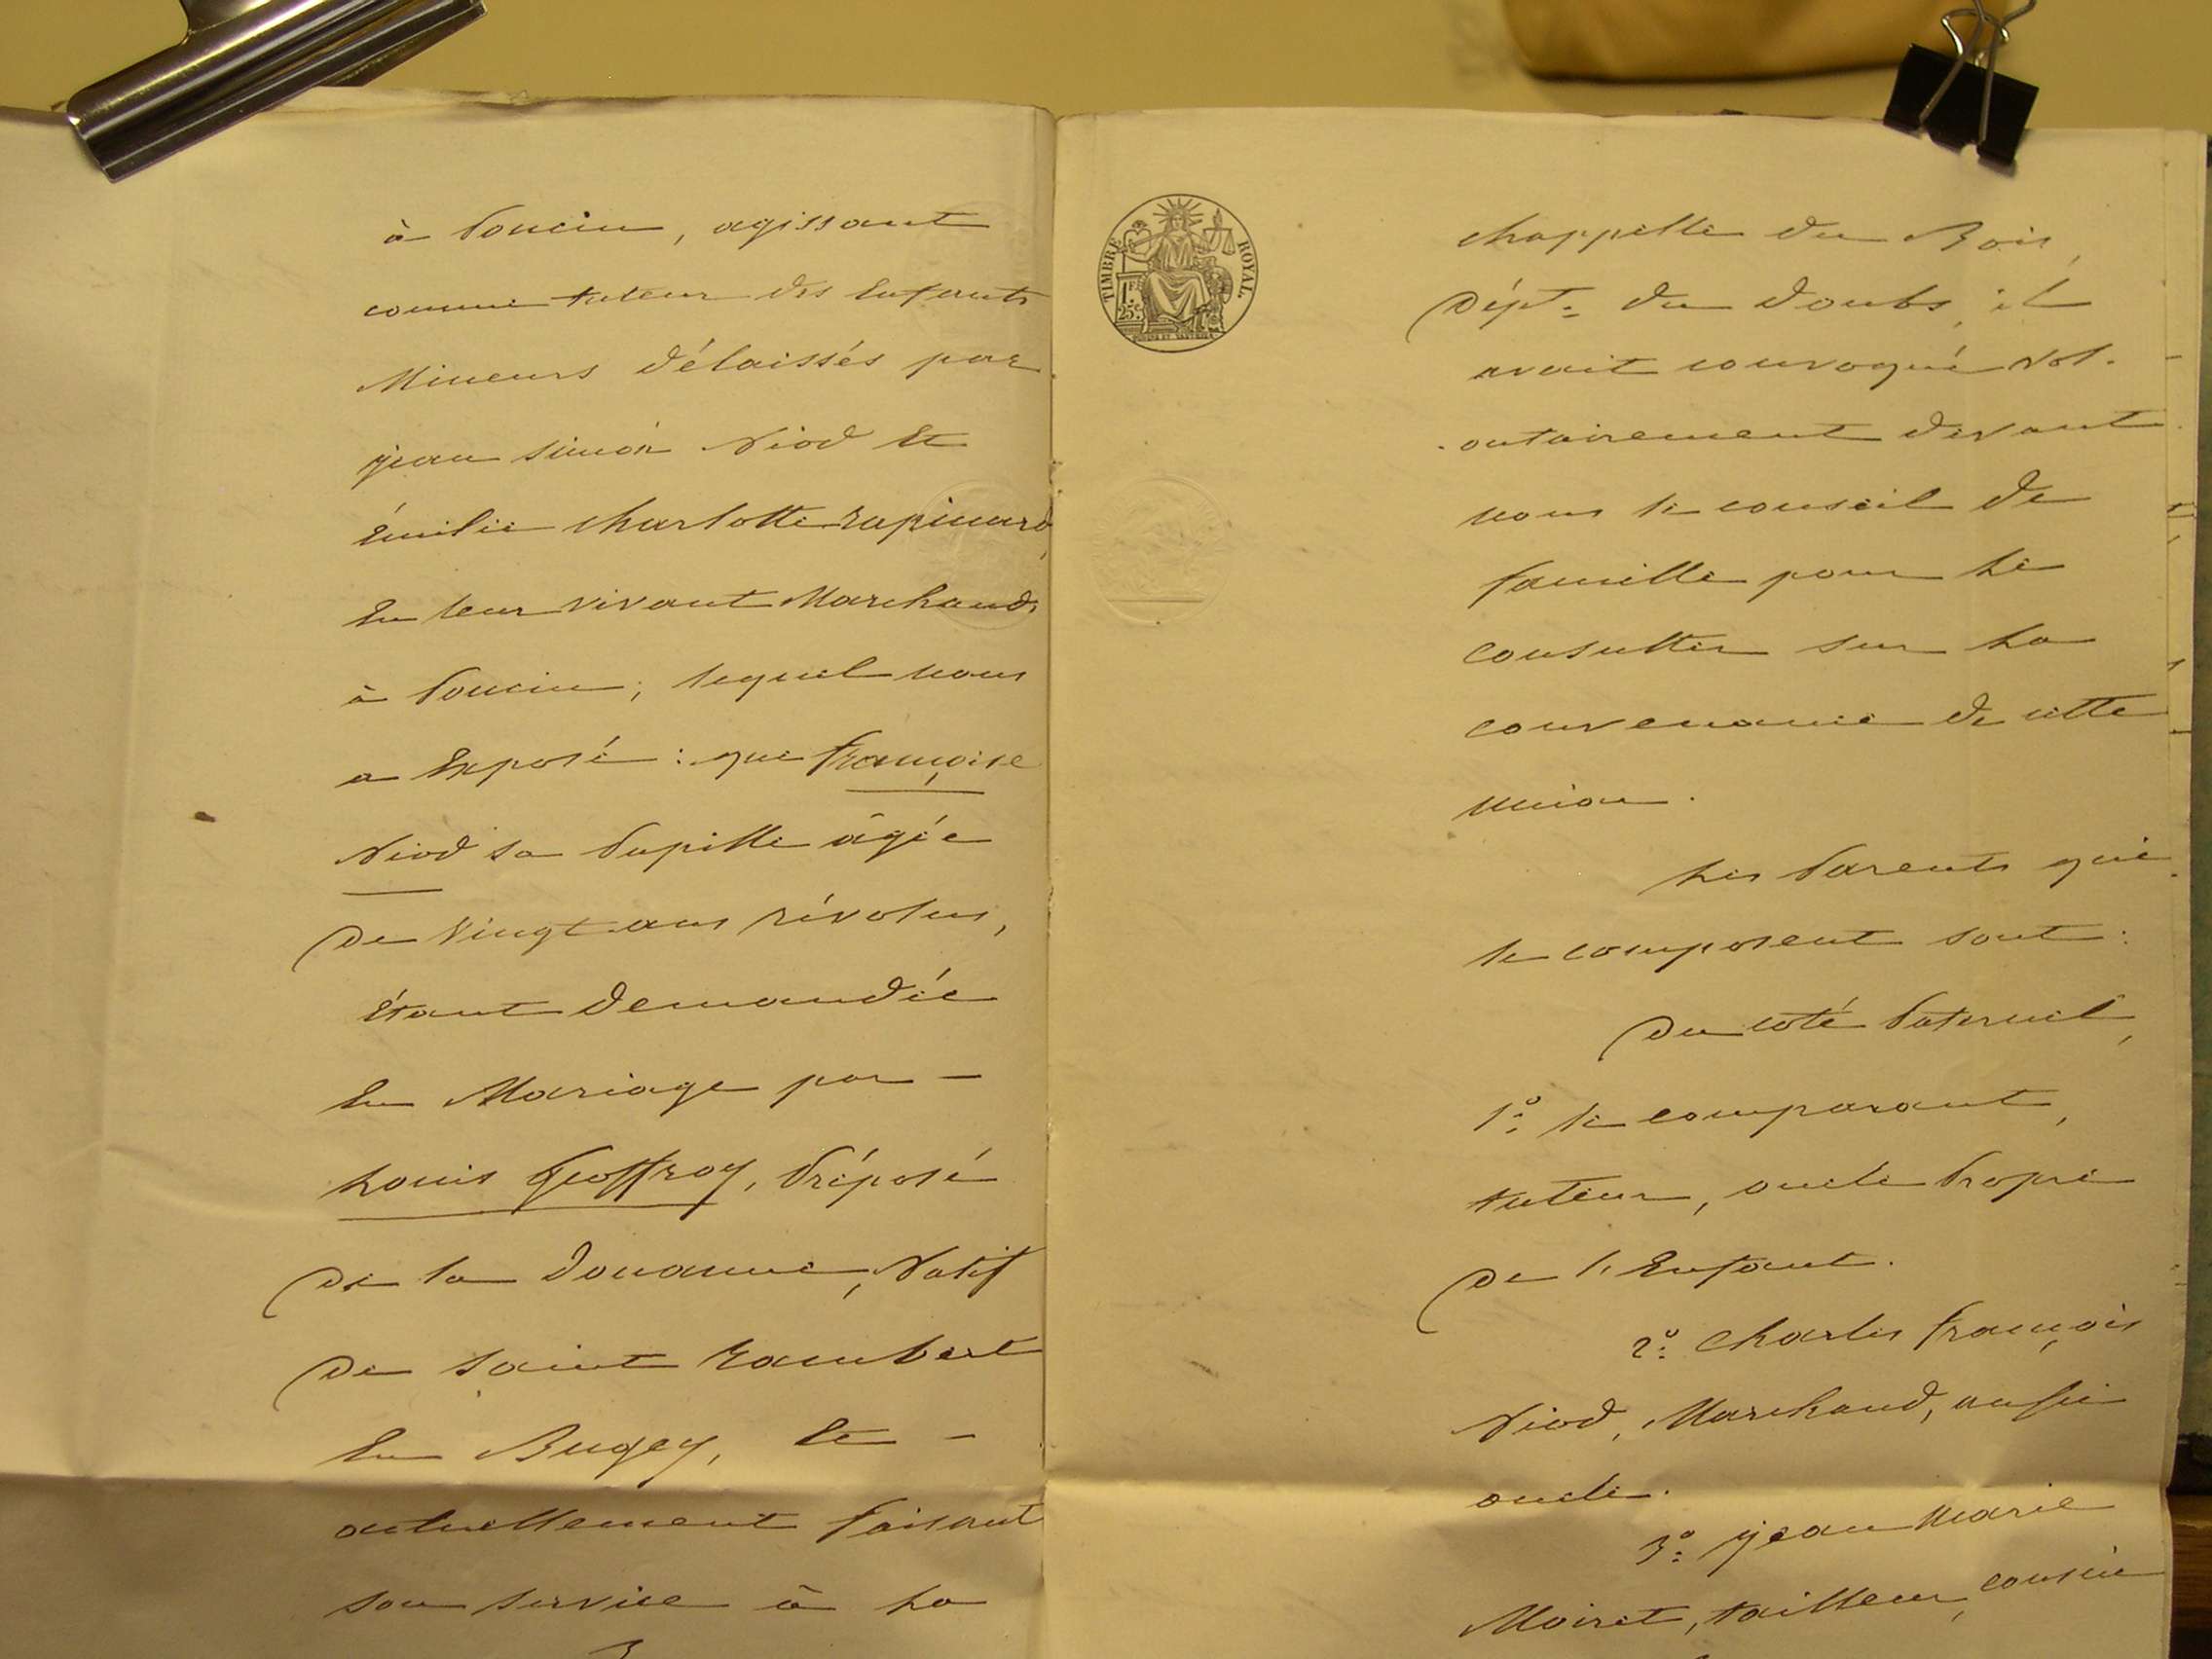 à Poncin, agissant
comme tuteur des Enfants
Mineurs délaissés par
jean simon Niod Et
Émilie charlotte rapinard,
En leur vivant Marchands
à Poncin; lequel nous
a Exposé: que françoise
Niod sa Pupille âgée
De Vingt ans révolus,
Étant Demandée
En Mariage par —
Louis Geoffroy, Préposé
De la Douanne, Natif
De Saint rambert
En Bugey, Et —
actuellement faisant
son service à La
TIMBRE ROYAL.
1 FR
25 C.
chappelle du Bois,
Dépt. du Doubs, il
avait convoqué vol-
-ontairement devant
nous le conseil de
famille pour Le
Consulter sur La
convenance de cette
union.
Les Parents qui
le composent sont:
Du coté Paternel,
1º. le comparant,
tuteur, oncle Propre
De l'Enfant.
2º. Charles françois
Niod, Marchand, aussi
oncle.
3º. jean Marie
Moiret, tailleur, cousin